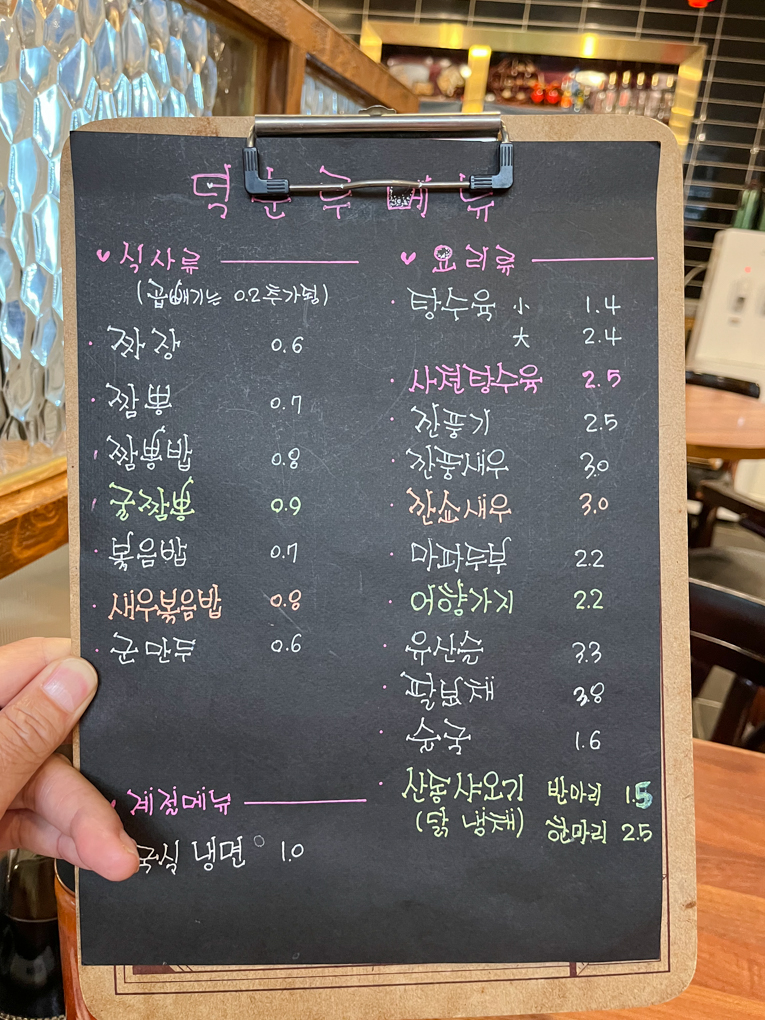 덕순루 메뉴
♥ 식사류
(곱빼기는 0.2 추가됨)
· 짜장 0.6
· 짬뽕 0.7
· 짬뽕밥 0.8
· 굴짬뽕 0.9
· 볶음밥 0.7
· 새우볶음밥 0.8
· 군만두 0.6
계절메뉴
국식 냉면 1.0
♥ 요리류
· 탕수육 小 1.4
大 2.4
· 사천탕수육 2.5
· 깐풍기 2.5
· 깐풍새우 3.0
· 깐쇼새우 3.0
· 마파두부 2.2
· 어향가지 2.2
· 유산슬 3.3
· 팔보채 3.8
· 1.6
· 산동샤오기 반마리 1.5
(닭 냉채) 한마리 2.5